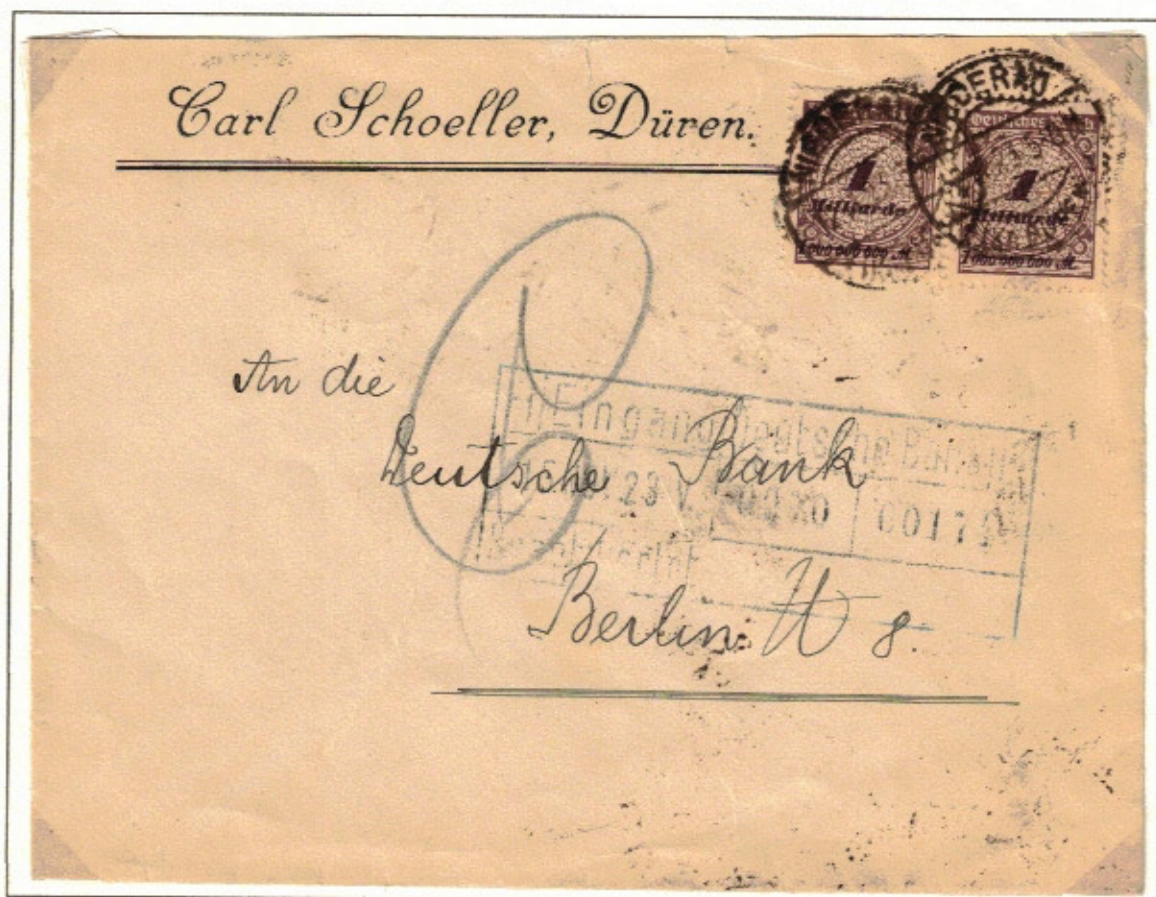 Carl Schoeller, Düren.
Deutsches Reich
1
Milliarde
1 000 000 000 M.
1
Milliarde
1 000 000 000 M.
An die
Deutsche Bank
Berlin W 8.
Eingang Deutsche
23
00179